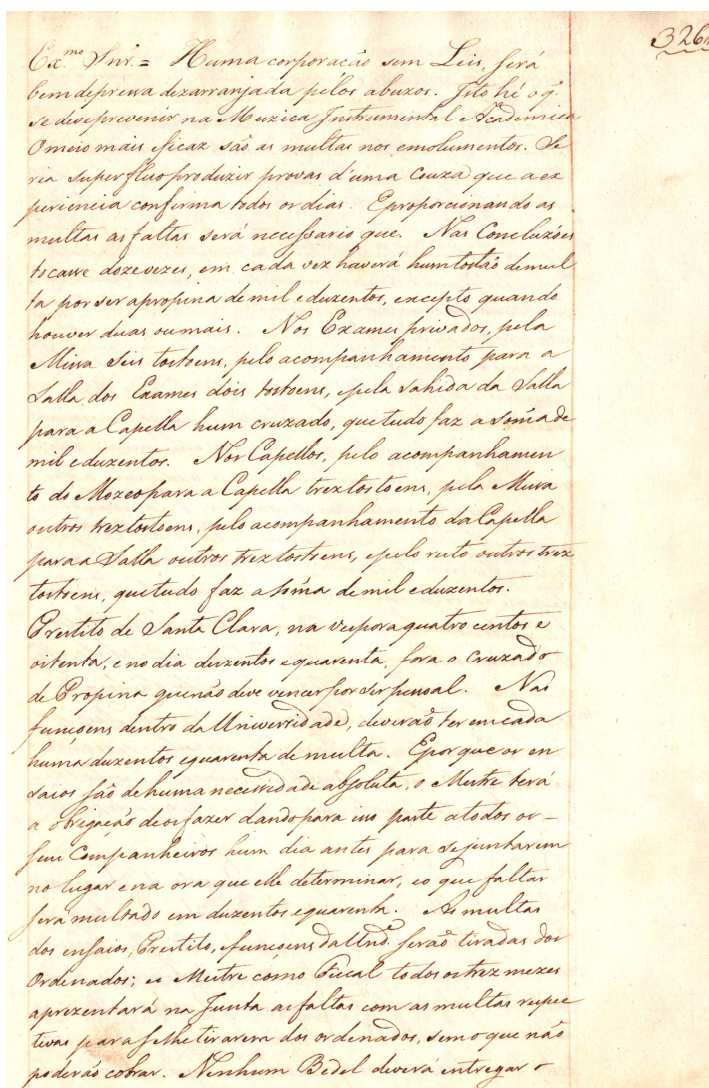 326
Ex.mo Snr. = Huma corporacão sem Leis, será
bem depressa dezarranjada pelos abuzos. Isto hé o q.
se deve prevenir na Muzica Instrumental e Academica
O meio mais eficaz são as multas nos emolumentos. Se
ria superfluo produzir provas d'uma couza que a ex
periencia confirma todos os dias. E proporcionando as
multas as faltas será necessario que. Nas Concluzões
tocasse doze vezes, em cada vez haverá hum tostão de mul
ta por ser a propina de mil e duzentos, excepto quando
houver duas ou mais. Nos Exames privados, pela
Missa Seis tostoens, pelo acompanhamento para a
Salla dos Exames dois tostoens, e pela sahida da Salla
para a Capella hum cruzado, que tudo faz a soma de
mil e duzentos. Nos Capellos, pelo acompanhamen
to do Mozeo para a Capella trez tostoens, pela Missa
outros trez tostoens, pelo acompanhamento da Capella
para a Salla outros trez tostoens, e pelo resto outros trez
tostoens, que tudo faz a soma de mil e duzentos.
Prestito de Santa Clara, na vespora quatro centos e
oitenta, e no dia duzentos e quarenta, fora o Cruzado
de Propina que não deve vencer por ser pensoal. Nas
funcoens dentro da Universidade, deverão ter em cada
huma duzentos e quarenta de multa. E por que os en
saios são de huma necessidade absoluta, o Mestre terá
a obrigacão de os fazer dando para isso parte a todos os -
seus Companheiros hum dia antes para se juntarem
no lugar e na ora que elle determinar, e o que faltar
será multado em duzentos e quarenta. As multas
dos ensaios, Prestito, e funcoens da Un.e serão tiradas dos
Ordenados; e o Mestre como Fiscal todos os trez mezes
aprezentará na Junta as faltas com as multas respec
tivas para se lhe tirarem dos ordenados, sem o que não
poderão cobrar. Nenhum Bedel deverá entregar o